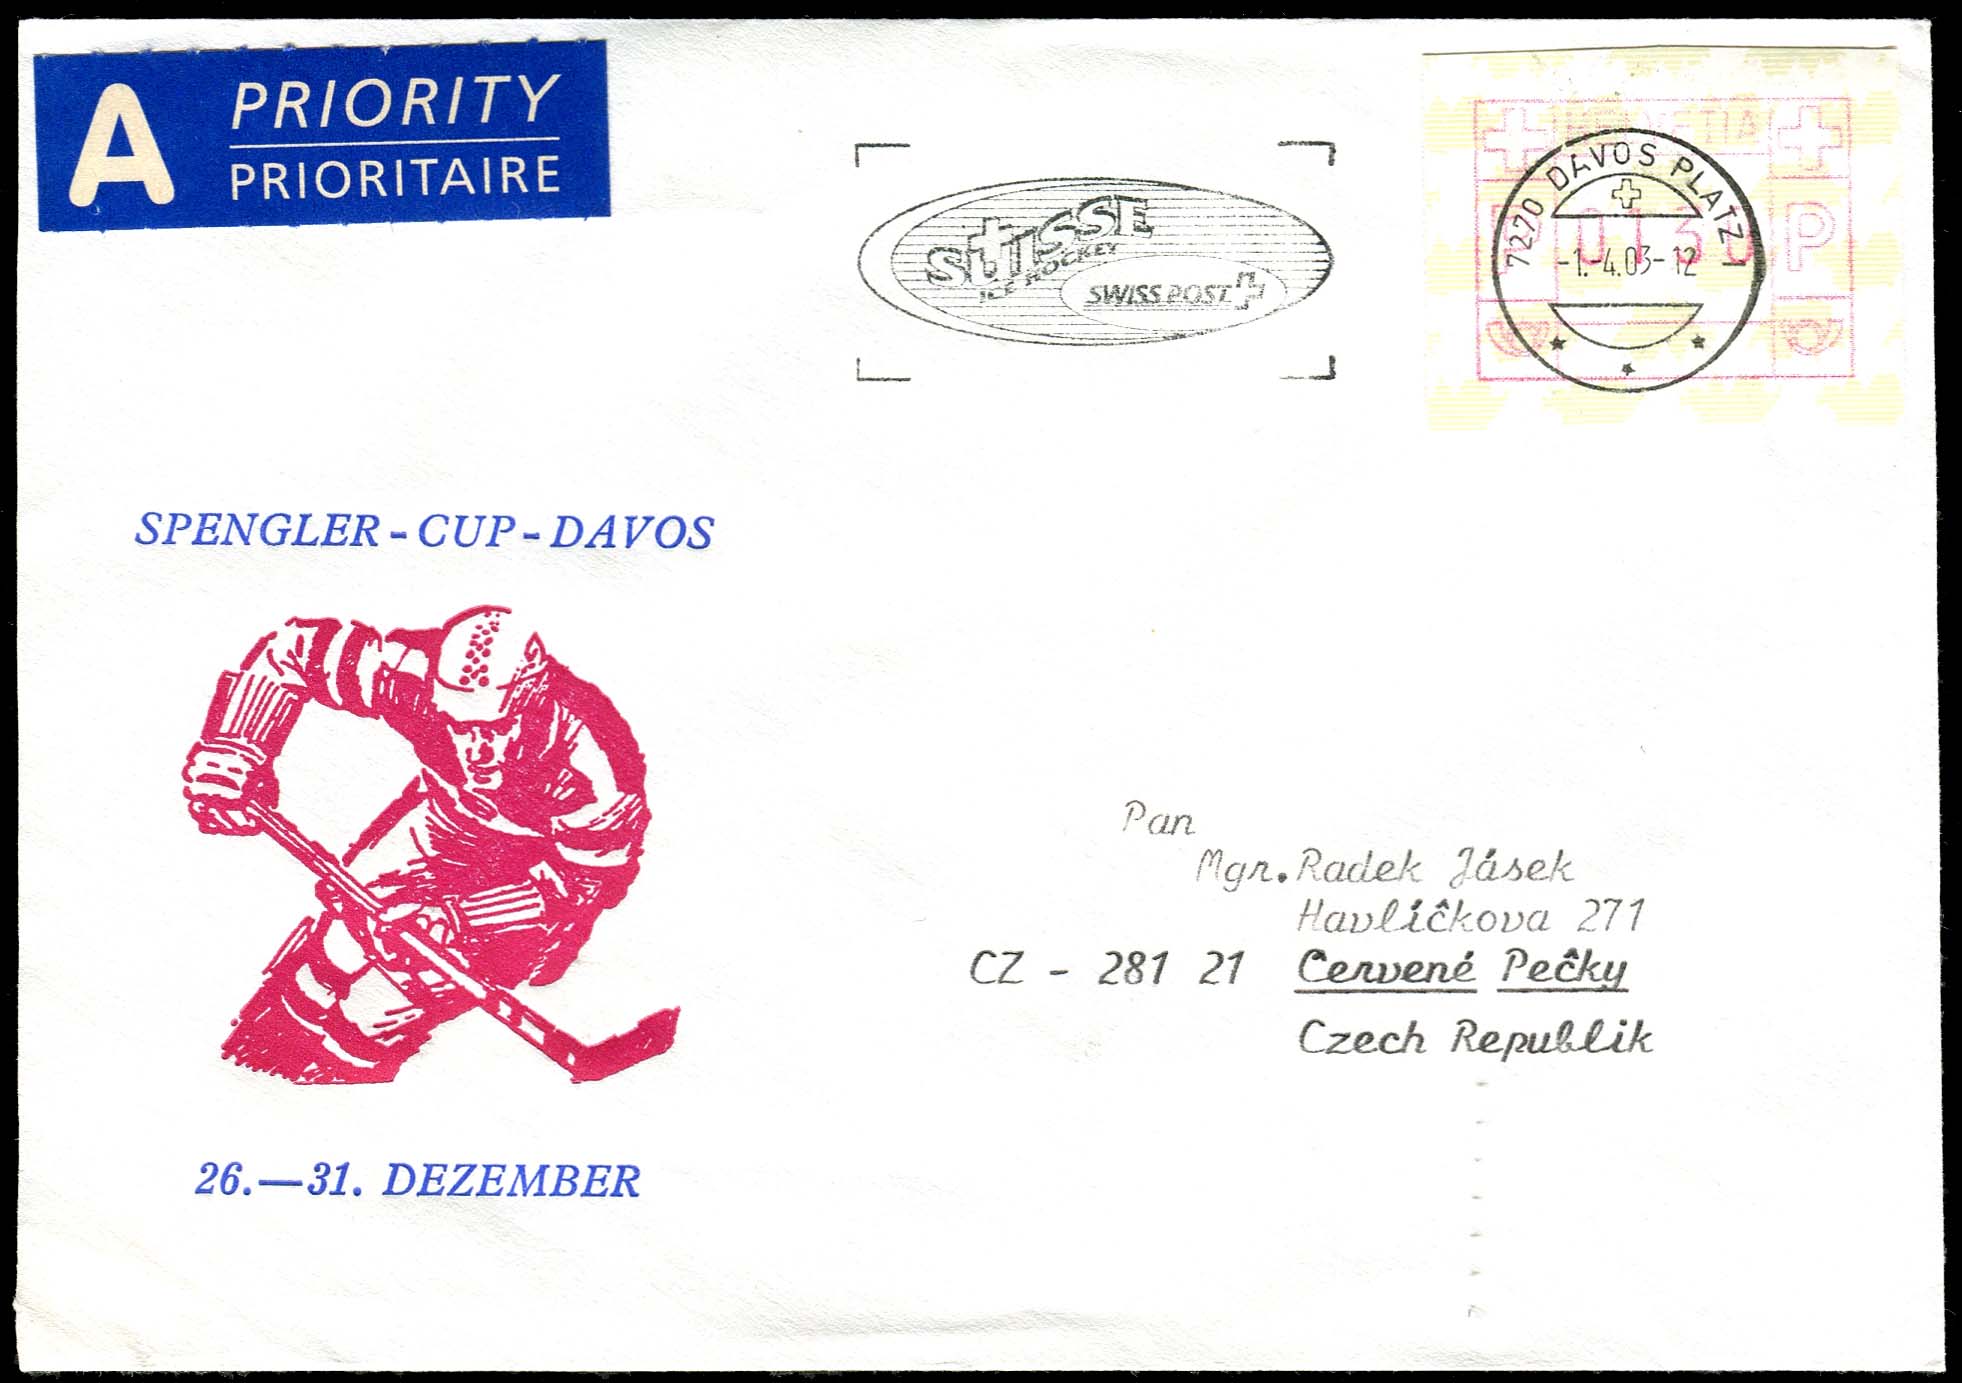 A
PRIORITY
PRIORITAIRE
SUISSE
ICE HOCKEY
SWISS POST
HELVETIA
7270 DAVOS PLATZ 1
-1.-4.03-12
P
SPENGLER-CUP-DAVOS
26.—31. DEZEMBER
Pan
Mgr. Radek Jásek
Havlíčkova 271
CZ - 281 21 Červené Pečky
Czech Republik